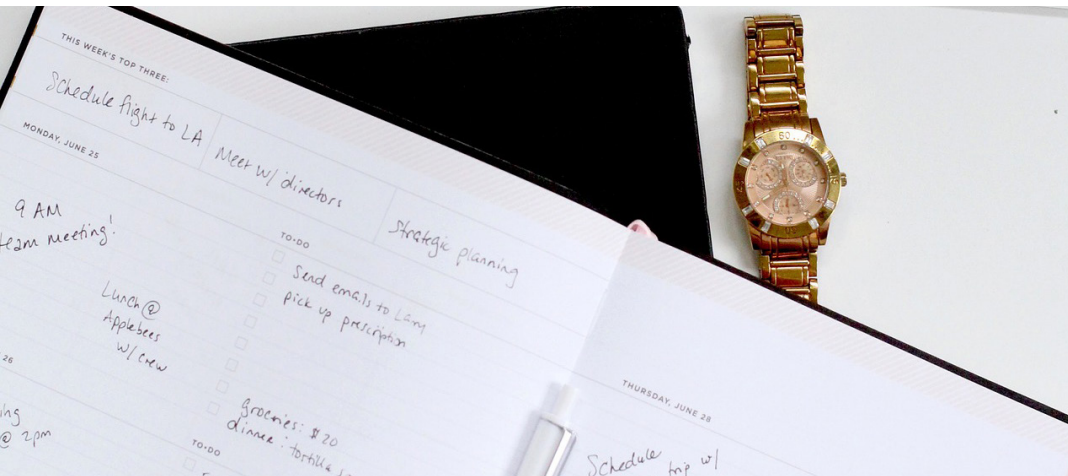 THIS WEEK'S TOP THREE:
Schedule flight to LA
Meet w/ directors
Strategic planning
MONDAY, JUNE 25
9 AM
team meeting!
Lunch @
Applebees
w/ crew
TO-DO
Send emails to Larry
pick up prescription
groceries: $20
dinner: tortilla
26
@ 2pm
TO-DO
THURSDAY, JUNE 28
Schedule
trip w/
60